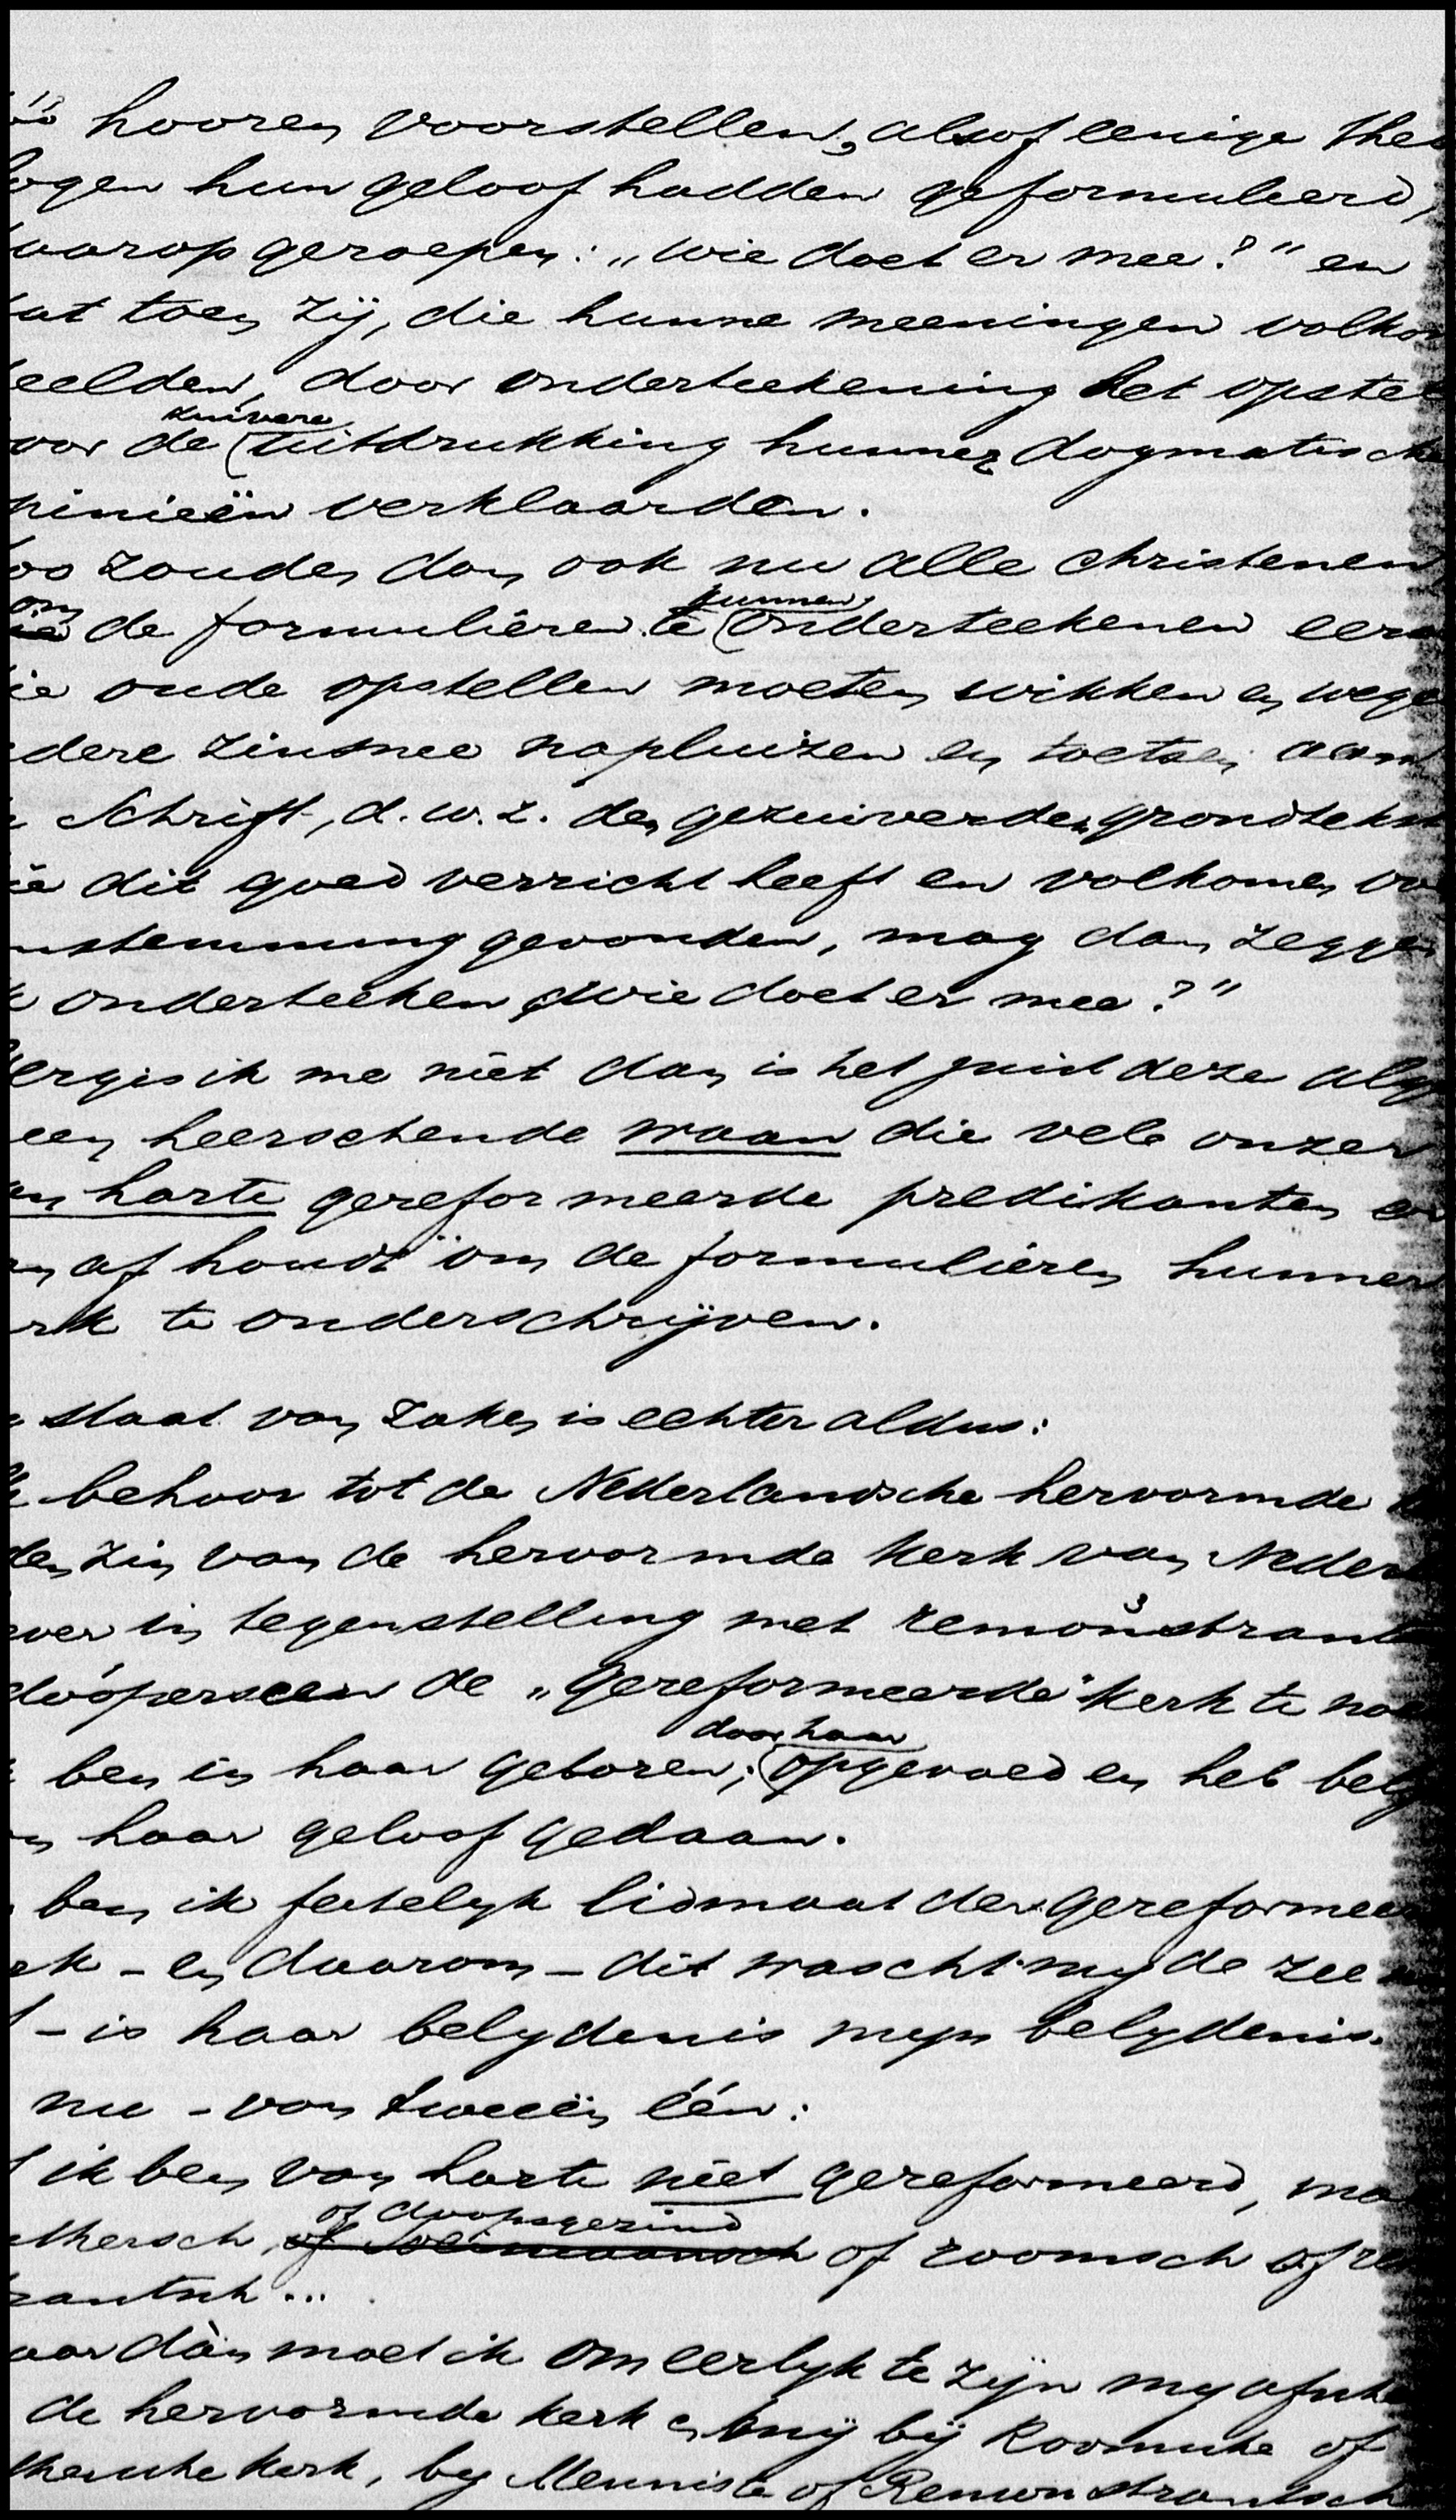 zóó hooren voorstellen, alsof eenige theo
logen hun geloof hadden geformuleerd,
daarop geroepen: „wie doet er mee?" en
dat toen zij, die hunne meeningen volkom
deelden, door onderteekening het opstel
voor de zuivere uitdrukking hunner dogmatische
opinieën verklaarden.
Zoo zouden dan ook nu alle christenen
om de formulieren te kunnen onderteekenen eers
die oude opstellen moeten wikken en wege
edere zinsnee napluizen en toetsen aan
Schrift, d.w.z. den gezuiverden grondtekst
ie dit goed verricht heeft en volkomen ov
nstemming gevonden, mag dan zeggen
k onderteeken, wie doet er mee?"
Vergis ik me niet dan is het juist deze alge
een heerschende waan die vele onzer
van harte gereformeerde predikanten er
van af houdt om de formulieren hunner
erk te onderschrijven.
staat van zaken is echter aldus:
Ik behoor tot de Nederlandsche hervormde
den zin van de hervormde Kerk van Nederl
ever in tegenstelling met remonstrant
dóóperscen de „gereformeerde" Kerk te noe
ben in haar geboren, door haar opgevoed en heb bely
n haar geloof gedaan.
ben ik feitelyk lidmaat der gereformee
rk – en daarom – dit wascht my de zee
– is haar belydenis myn belydenis.
nu – van tweeën één:
f ik ben van harte niet gereformeerd, ma
thersch, of doopsgezind of roomsch of re
rantsch...
aar dàn moet ik om eerlyk te zijn my afsche
de hervormde Kerk en mij bij Roomsche of
thersche Kerk, by Menniste of Remonstrantsch